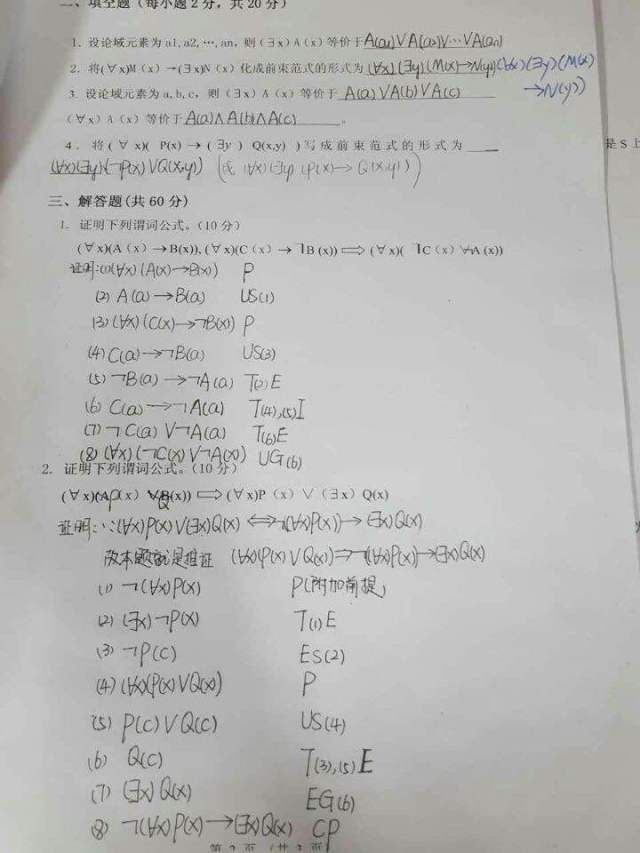 二、填空题（每小题2分，共20分）
1. 设论域元素为a1, a2, …, an，则（∃x）A（x）等价于 A(a1)∨A(a2)∨…∨A(an)
2. 将(∀x)M（x）→(∃x)N（x）化成前束范式的形式为 (∀x)(∃y)(M(x)→N(y)) (∀x)(∃y)(M(x)
→N(y))
3. 设论域元素为a, b, c，则（∃x）A（x）等价于 A(a)∨A(b)∨A(c)
(∀x）A（x）等价于 A(a)∧A(b)∧A(c) 。
是S上
4. 将(∀x)( P(x)→(∃y) Q(x,y) )写成前束范式的形式为
(∀x)(∃y)(¬P(x)∨Q(x,y)) (或 (∀x)(∃y)(P(x)→Q(x,y)))
三、解答题(共60分)
1. 证明下列谓词公式。（10分）
(∀x)(A（x）→B(x)), (∀x)(C（x）→ ㄱB (x)) ⟹ (∀x)( ㄱC（x）∨ㄱA (x))
证明:(1)(∀x)(A(x)→B(x)) P
(2) A(a)→B(a) US(1)
(3) (∀x)(C(x)→¬B(x)) P
(4) C(a)→¬B(a) US(3)
(5) ¬B(a)→¬A(a) T(2)E
(6) C(a)→¬A(a) T(4),(5)I
(7) ¬C(a)∨¬A(a) T(6)E
(8) (∀x)(¬C(x)∨¬A(x)) UG(6)
2. 证明下列谓词公式。（10分）
(∀x)(P（x）∨Q(x)) ⟹ (∀x)P（x）∨（∃x）Q(x)
证明:∵(∀x)P(x)∨(∃x)Q(x)⟺¬((∀x)P(x))→(∃x)Q(x)
故本题就是推证 (∀x)(P(x)∨Q(x))⟹¬((∀x)P(x))→(∃x)Q(x)
(1) ¬(∀x)P(x) P(附加前提)
(2) (∃x)¬P(x) T(1)E
(3) ¬P(c) ES(2)
(4) (∀x)(P(x)∨Q(x)) P
(5) P(c)∨Q(c) US(4)
(6) Q(c) T(3),(5)E
(7) (∃x)Q(x) EG(6)
(8) ¬(∀x)P(x)→(∃x)Q(x) CP